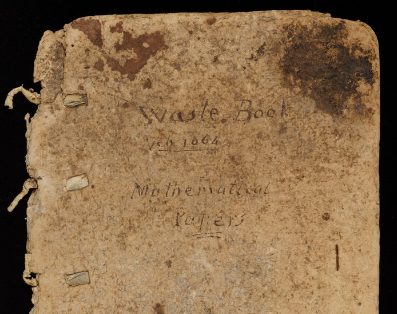 Waste Book
1664
Mathematical
Papers